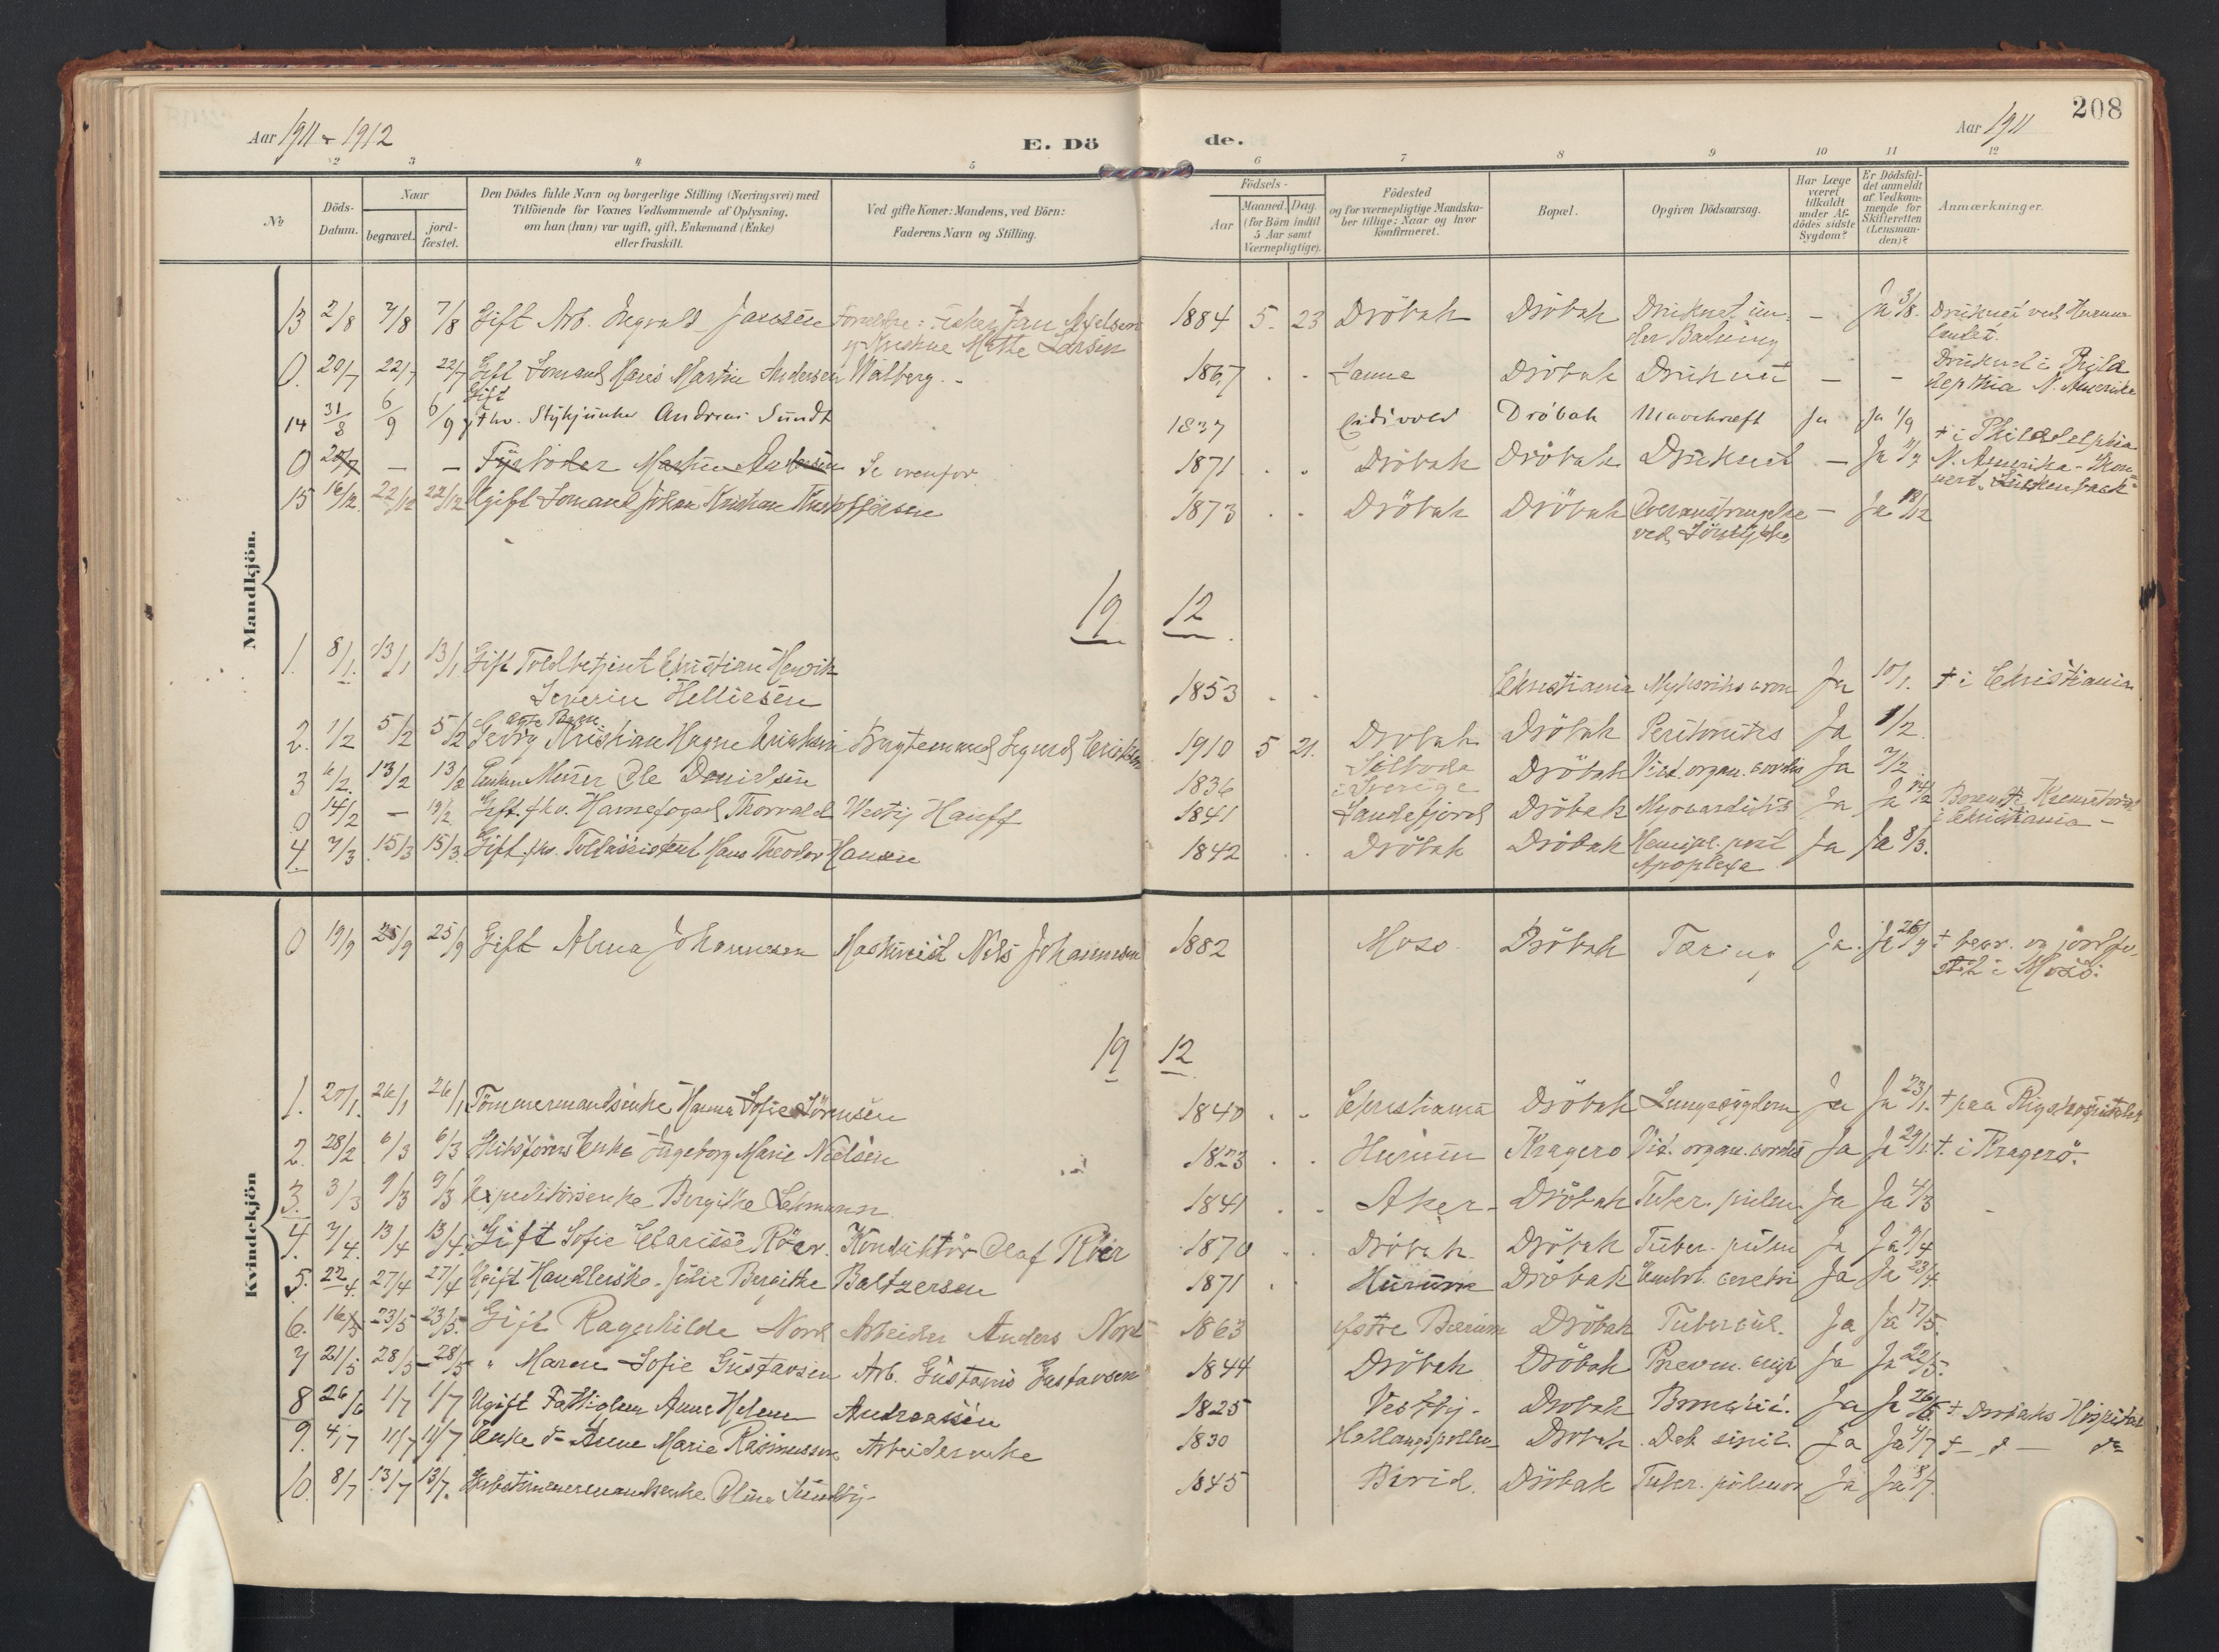 208
Aar 1911 - 1912
E. Dö
de.
Aar 1911
2 3 4 5 6 7 8 9 10 11 12
No
Döds-Datum.
Naar
begravet.
jord-fæstet.
Den Dödes fulde Navn og borgerlige Stilling (Næringsvei) med
Tilföiende for Voxnes Vedkommende af Oplysning,
om han (hun) var ugift, gift, Enkemand (Enke)
eller fraskilt.
Ved gifte Koner: Mandens, ved Börn:
Faderens Navn og Stilling.
Födsels-
Aar
Maaned. Dag.
(for Börn indtil
5 Aar samt
Værnepligtige).
Födested
og for værnepligtige Mandska-
ber tillige: Naar og hvor
konfirmeret.
Bopæl.
Opgiven Dödsaarsag.
Har Læge
været
tilkaldt
under Af-
dödes sidste
Sygdom?
Er Dödsfal-
det anmeldt
af Vedkom-
mende for
Skifteretten
(Lensman-
den)?
Anmærkninger.
Mandkjön.
13 2/8 7/8 7/8 Gift Arb. Ingvald Jansen 1884 5. 23 Dröbak Dröbak Druknet un- – Ja 3/8. Druknet ved Hurum-
der Badning landet.
0. 20/7 22/7 22/7 Gift Sømand Hans Martin Andersen Walberg. 1867 Dröbak Druknet – –
N. Amerika
Gift
14 31/8 6/9 6/9 fhv. Stykjunker Andreas Sundt 1837 Eidsvold Dröbak Mavekræft Ja Ja 1/9
0 20/7 – – Fyrböder Martin Andersen Se ovenfor. 1871 Dröbak Dröbak Druknet – Ja † i Philadelphia
N. Amerika
15 16/12 22/12 22/12 Ugift Sömand Johan Kristian Kristoffersen 1873 Dröbak Dröbak Overanstrengelse – Ja 18/12
19 12
1. 8/1. 13/1 13/1 Gift Toldbetjent Christian Henrik
Severin Helliesen 1853 Christiania Ja 10/1. † i Christiania
ægte Barn
2. 1/2 5/2 5/2 Georg Kristian Eriksen Sigurd Eriksen 1910 5 21. Drøbak Dröbak Peritonitis Ja 1/2.
3 6/2. 13/2 13/2 Murer Ole Danielsen 1836 i Sverige Dröbak Vit. organ. cordis Ja 7/2
0 14/2 – 19/2 Gift. fhv. Havnefoged Thorvald Westy Hauff 1841 Sandefjord Dröbak Myocarditis Ja Ja 14/2
i Christiania –
4. 7/3 15/3 15/3. Gift. fhv. Toldassistent Hans Theodor Hansen 1842 Dröbak Dröbak Hemipl. post Ja Ja 8/3.
Apoplexia
Kvindekjön
0 19/9 25/9 25/9 Gift Alma Johannesen Maskinist Nils Johannesen 1882 Moss Dröbak Tæring Ja. Ja 20/9 † begr. og jordfæ-
stet i Moss.
19 12
1. 20/1. 26/1 26/1 Tömmermandsenke Hanna Sofie Sörensen 1840 Christiania Dröbak Lungesygdom Ja Ja 23/1. † paa Rigshospitalet
2. 28/2 6/3 6/3 Skibsförers Enke Ingeborg Marie Nielsen 1823 Hurum Kragerø Vit. organ. cordis Ja Ja † i Kragerö.
3. 3/3 9/3 9/3 Expeditörsenke Bergithe Lehmann 1841 Aker Dröbak Tuber. pulm. Ja Ja 4/3
4. 7/4. 13/4 13/4. Gift Sofie Clarisse Röer. Konduktör Olaf Röer 1870 Dröbak Dröbak Tuber. pulm Ja Ja 9/4
5. 22/4. 27/4 27/4 Ugift Handlerske Julie Bergithe Baltzersen 1871 Hurum Dröbak Embol. cerebri Ja Ja 23/4.
6. 16/5 23/5 23/5. Gift Ragnhilde Nord Arbeider Anders Nord 1863 Østre Bærum Dröbak Tubercul. Ja Ja 17/5.
7 21/5 28/5 28/5 " Maren Sofie Gustavsen Arb. Gustavus Gustavsen 1844 Dröbak Dröbak Pneum. Ja Ja 22/5.
8 26/6 1/7 1/7 Ugift Fattiglem Anne Helene Andreassen 1825 Vestby. Dröbak Ja Ja † Dröbaks Hospital
9. 4/7 11/7 11/7 Enke Anne Marie Rasmussen Arbeiderenke 1830 Hallangspollen Dröbak Deb. senil. Ja Ja † – d – do
10. 8/7 13/7 13/7. Olina Sundby 1845 Birid. Dröbak Tuber. pulmon Ja Ja 8/7.